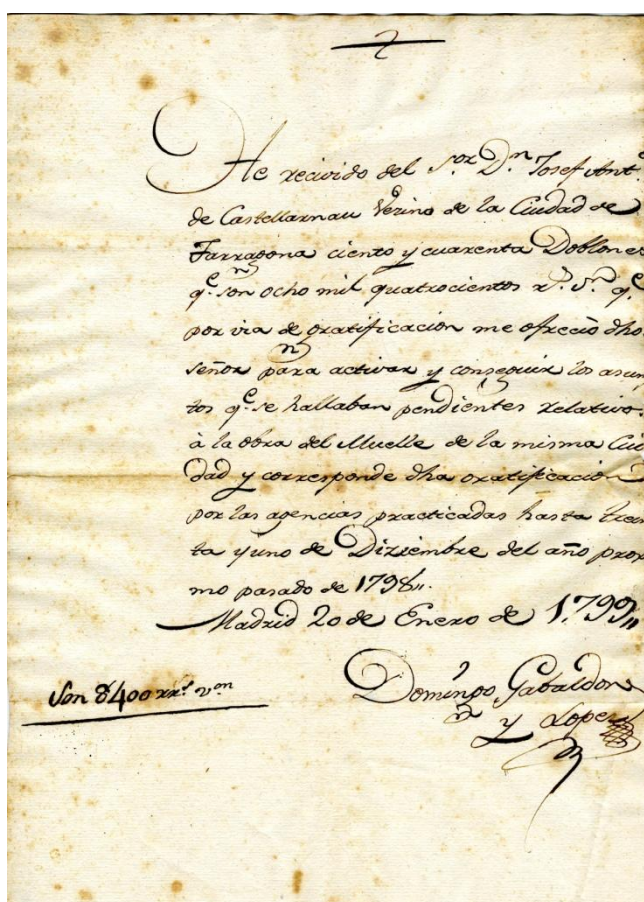 He recivido del S.or D.n Josef Ant.
de Castellarnau Vezino de la Ciudad de
Tarragona ciento y cuarenta Doblones
q.e son ocho mil quatrocientos r.s v.n q.e
por via de gratificacion me ofreció dho
señor para activar y conseguir los asun
tos q.e se hallaban pendientes relativo
à la obra del Muelle de la misma Ciu
dad y corresponde dha gratificacion
por las agencias practicadas hasta trein
ta y uno de Diziembre del año proxi
mo pasado de 1798,,.
Madrid 20 de Enero de 1.799,,
Son 8400 rr.s v.on
Domingo Gabaldon
y Lopez